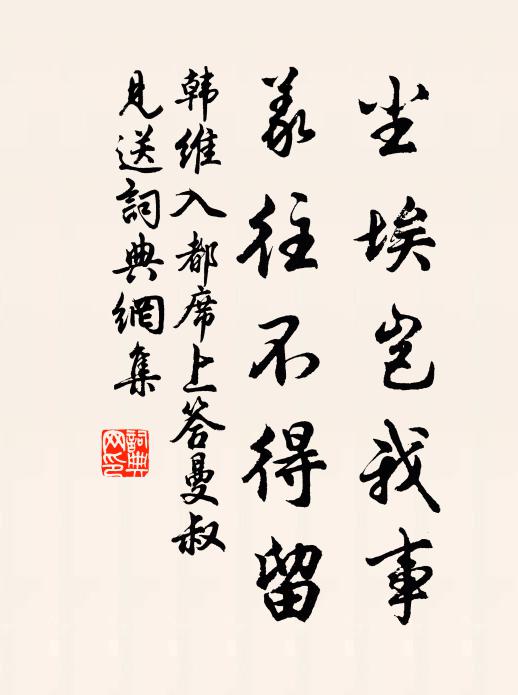 尘埃岂我事
义往不得留
韩维入都席上答曼叔
见送词典网集
词典网印